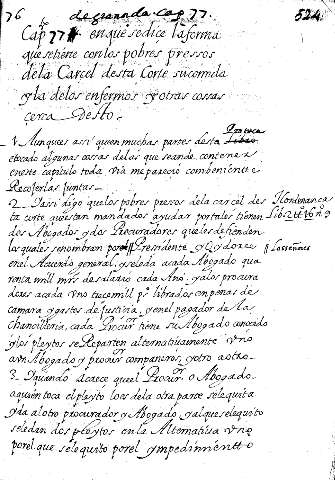 76 de granada Cap 77. 524
Cap 77 en que se dice la forma
que se tiene con los pobres pressos
de la Carcel desta Corte su comida
y la de los enfermos y otras cossas
cerca desto.
1 Aunque es assi que en muchas partes desta
e tocado algunas cossas de las que se an de contener
en este capitulo toda via me parecio combeniente
Recoserlas Juntas.
2 I assi digo que los pobres presos de la carcel des
ta corte que estan mandados ayudar por tales tienen
dos Abogados y dos Procuradores que les defienden
los quales se nombran por el Presidente y Oydores
en el Acuerdo general, y se le da a cada Abogado qua
renta mill mrs de salario cada Año. y a los procura
dores a cada uno tuce mill ps librados en penas de
camara y gastos de Justicia, y en el pagador de la
Chancilleria, cada Procur tiene su Abogado conocido
y los pleytos se Reparten alternativamente uno
a un Abogado y procur companeros, y otro a otro.
3. I quando Acaece que el Procur o Abogado
a quien toca el pleyto lo es de la otra parte se le quita
y da al otro procurador y Abogado y al que se le quito
se le dan dos pleytos en la Alternativa uno
por el que se le quito por el ympedimento